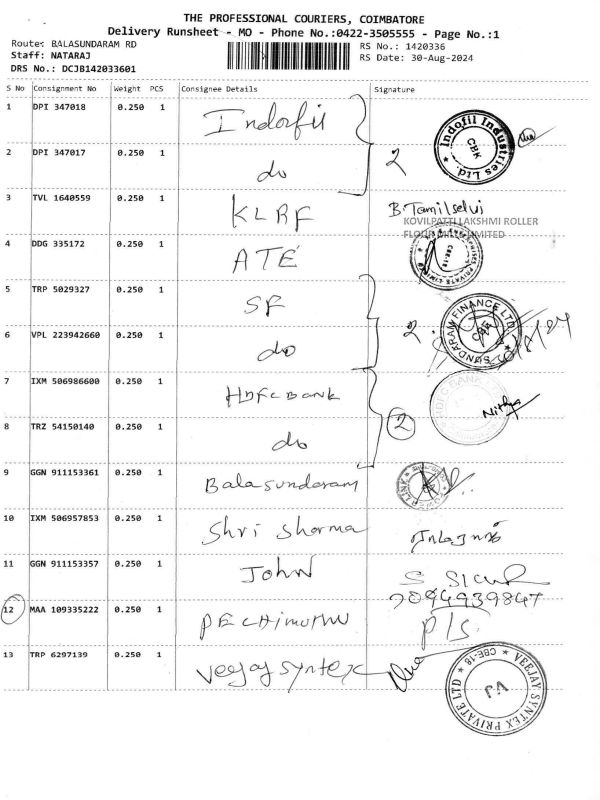 THE PROFESSIONAL COURIERS, COIMBATORE
Delivery Runsheet - MO - Phone No.:0422-3505555 - Page No.:1
Route: BALASUNDARAM RD
RS No.: 1420336
Staff: NATARAJ
RS Date: 30-Aug-2024
DRS No.: DCJB142033601
S No Consignment No Weight PCS Consignee Details Signature
1 DPI 347018 0.250 1 Indofil
Indofil Industries Ltd. CBK
2 DPI 347017 0.250 1 do 2
3 TVL 1640559 0.250 1 KLRF B. Tamilselvi
KOVILPATTI LAKSHMI ROLLER
FLOUR MILLS LIMITED
4 DDG 335172 0.250 1 ATE
PRIVATE LIMITED CBE-18
5 TRP 5029327 0.250 1 SF
2 SUNDARAM FINANCE LTD
6 VPL 223942660 0.250 1 do
7 IXM 506986600 0.250 1 HDFC BANK
Nithya
8 TRZ 54150140 0.250 1 do 2
9 GGN 911153361 0.250 1 Balasundaram
10 IXM 506957853 0.250 1 Shri Sharma
11 GGN 911153357 0.250 1 JOHN
12 MAA 109335222 0.250 1 PECHIMUTHU P/S
13 TRP 6297139 0.250 1 Veejay Syntex
VEEJAY SYNTEX PRIVATE LTD CBE-18 VJ